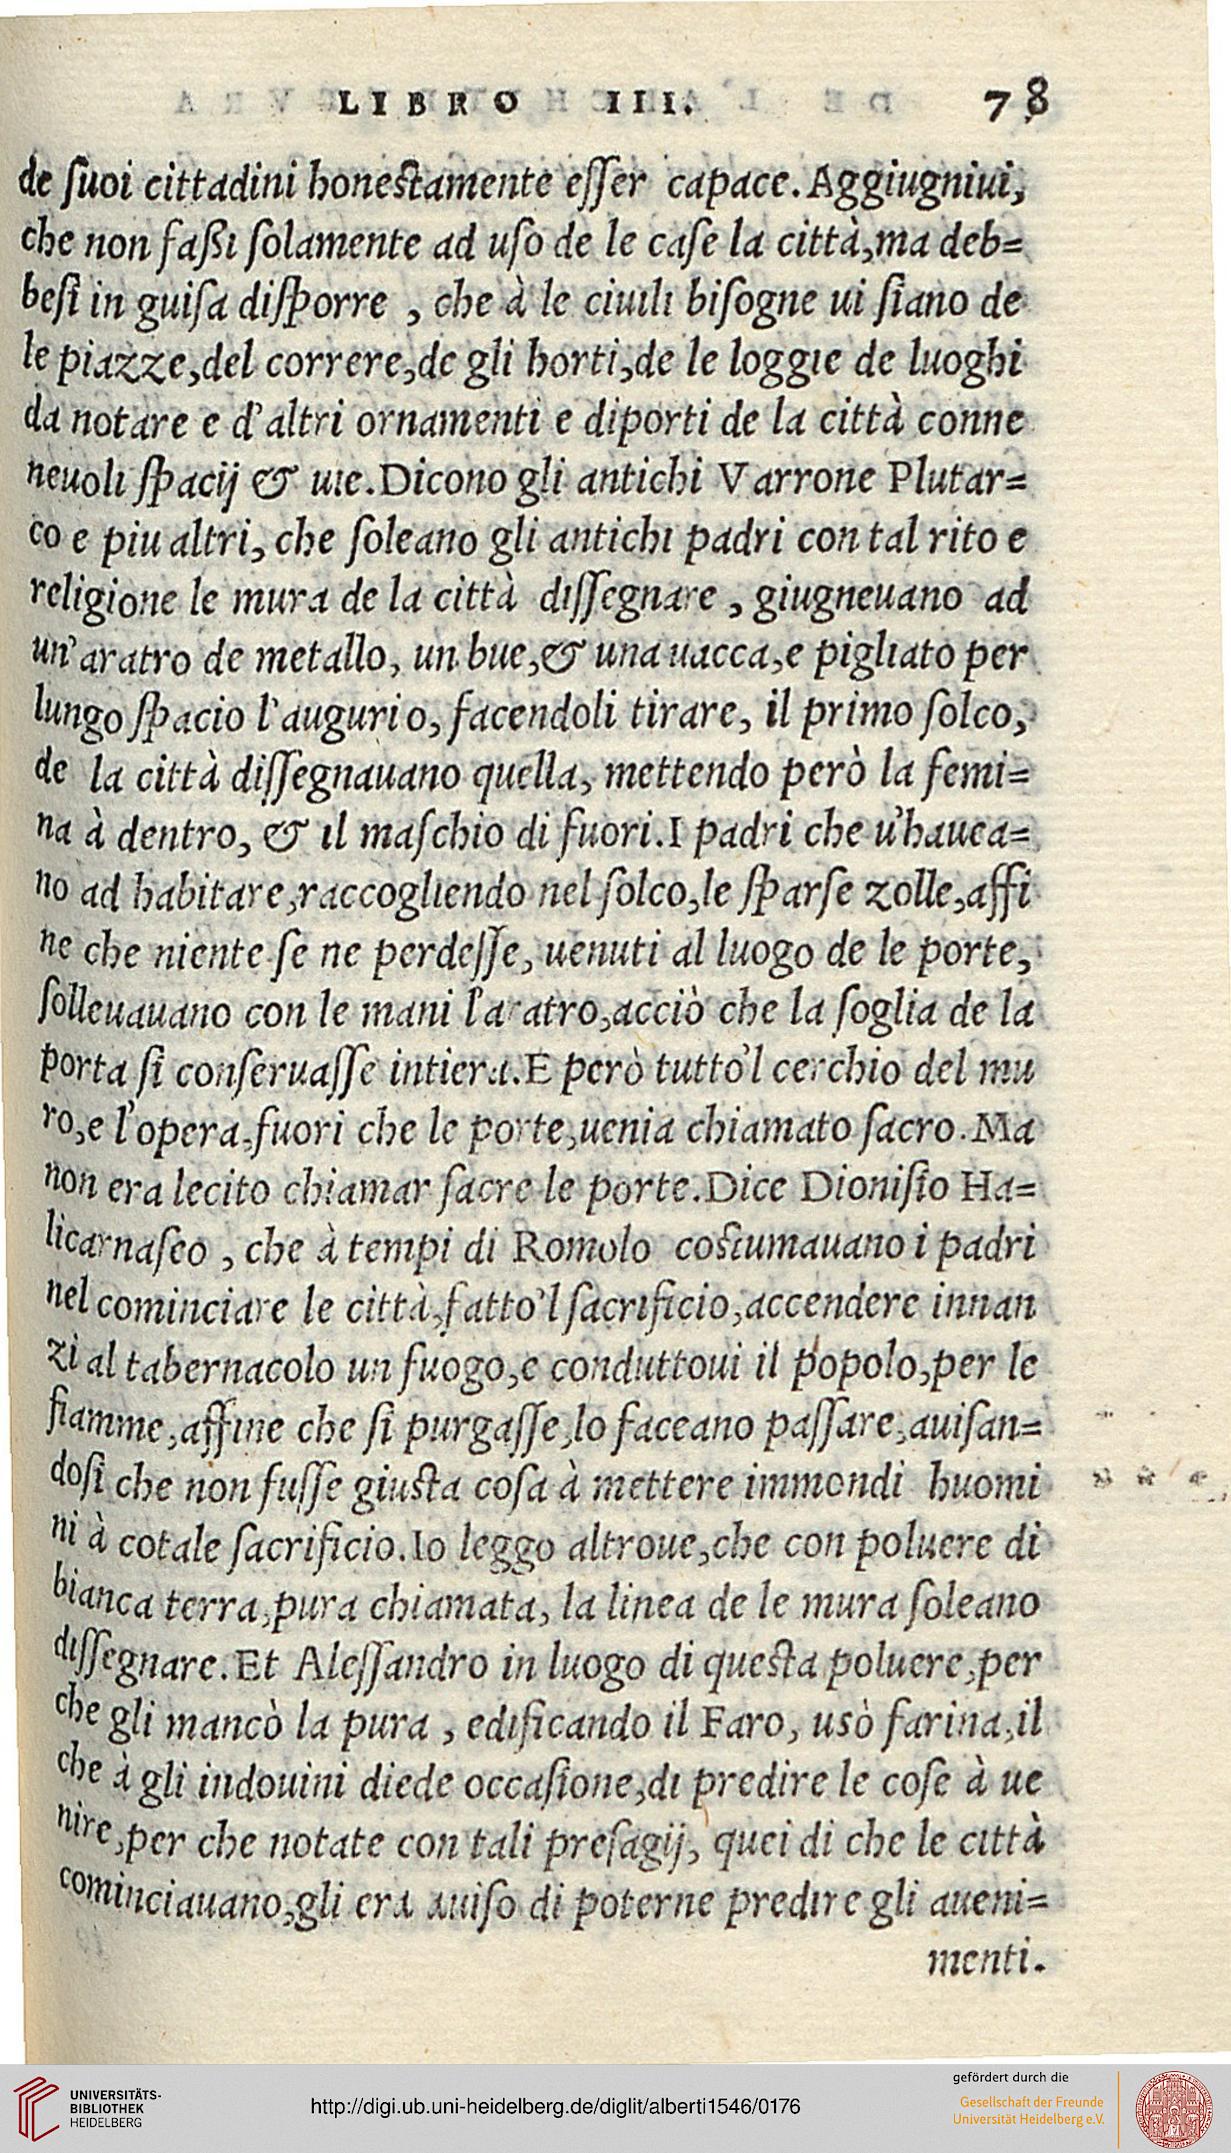 LIBRO III. 78
de ſuoi cittadini honeſtamente eſſer capace. Aggiugniui,
che non faßi ſolamente ad uſo de le caſe la città, ma deb=
beſi in guiſa diſporre , che à le ciuili biſogne ui ſiano de
le piazze, del correre, de gli horti, de le loggie de luoghi
da notare e d'altri ornamenti e diporti de la città conne
neuoli ſpacij & uie. Dicono gli antichi Varrone Plutar=
co e piu altri, che ſoleano gli antichi padri con tal rito e
religione le mura de la città diſſegnare , giugneuano ad
un'aratro de metallo, un bue, & una uacca, e pigliato per
lungo ſpacio l'augurio, facendoli tirare, il primo ſolco,
de la città diſſegnauano quella, mettendo però la femi=
na à dentro, & il maſchio di fuori. I padri che u'hauea=
no ad habitare, raccogliendo nel ſolco, le ſparſe zolle, affi
ne che niente ſe ne perdeſſe, uenuti al luogo de le porte,
ſolleuauano con le mani l'aratro, acciò che la ſoglia de la
porta ſi conſeruaſſe intiera. E però tutto'l cerchio del mu
ro, e l'opera, fuori che le porte, uenia chiamato ſacro. Ma
non era lecito chiamar ſacre le porte. Dice Dioniſio Ha=
licarnaſeo , che à tempi di Romolo coſtumauano i padri
nel cominciare le città, fatto'l ſacrificio, accendere innan
zi al tabernacolo un fuogo, e conduttoui il popolo, per le
fiamme, affine che ſi purgaſſe, lo faceano paſſare, auiſan=
doſi che non fuſſe giuſta coſa à mettere immondi huomi
ni à cotale ſacrificio. Io leggo altroue, che con poluere di
bianca terra, pura chiamata, la linea de le mura ſoleano
diſſegnare. Et Aleſſandro in luogo di queſta poluere, per
che gli mancò la pura , edificando il Faro, usò farina, il
che à gli indouini diede occaſione, di predire le coſe à ue
nire, per che notate con tali preſagij, quei di che le città
cominciauano, gli era auiſo di poterne predire gli aueni=
menti.
UNIVERSITÄTS-
BIBLIOTHEK
HEIDELBERG
http://digi.ub.uni-heidelberg.de/diglit/alberti1546/0176
gefördert durch die
Gesellschaft der Freunde
Universität Heidelberg e.V.